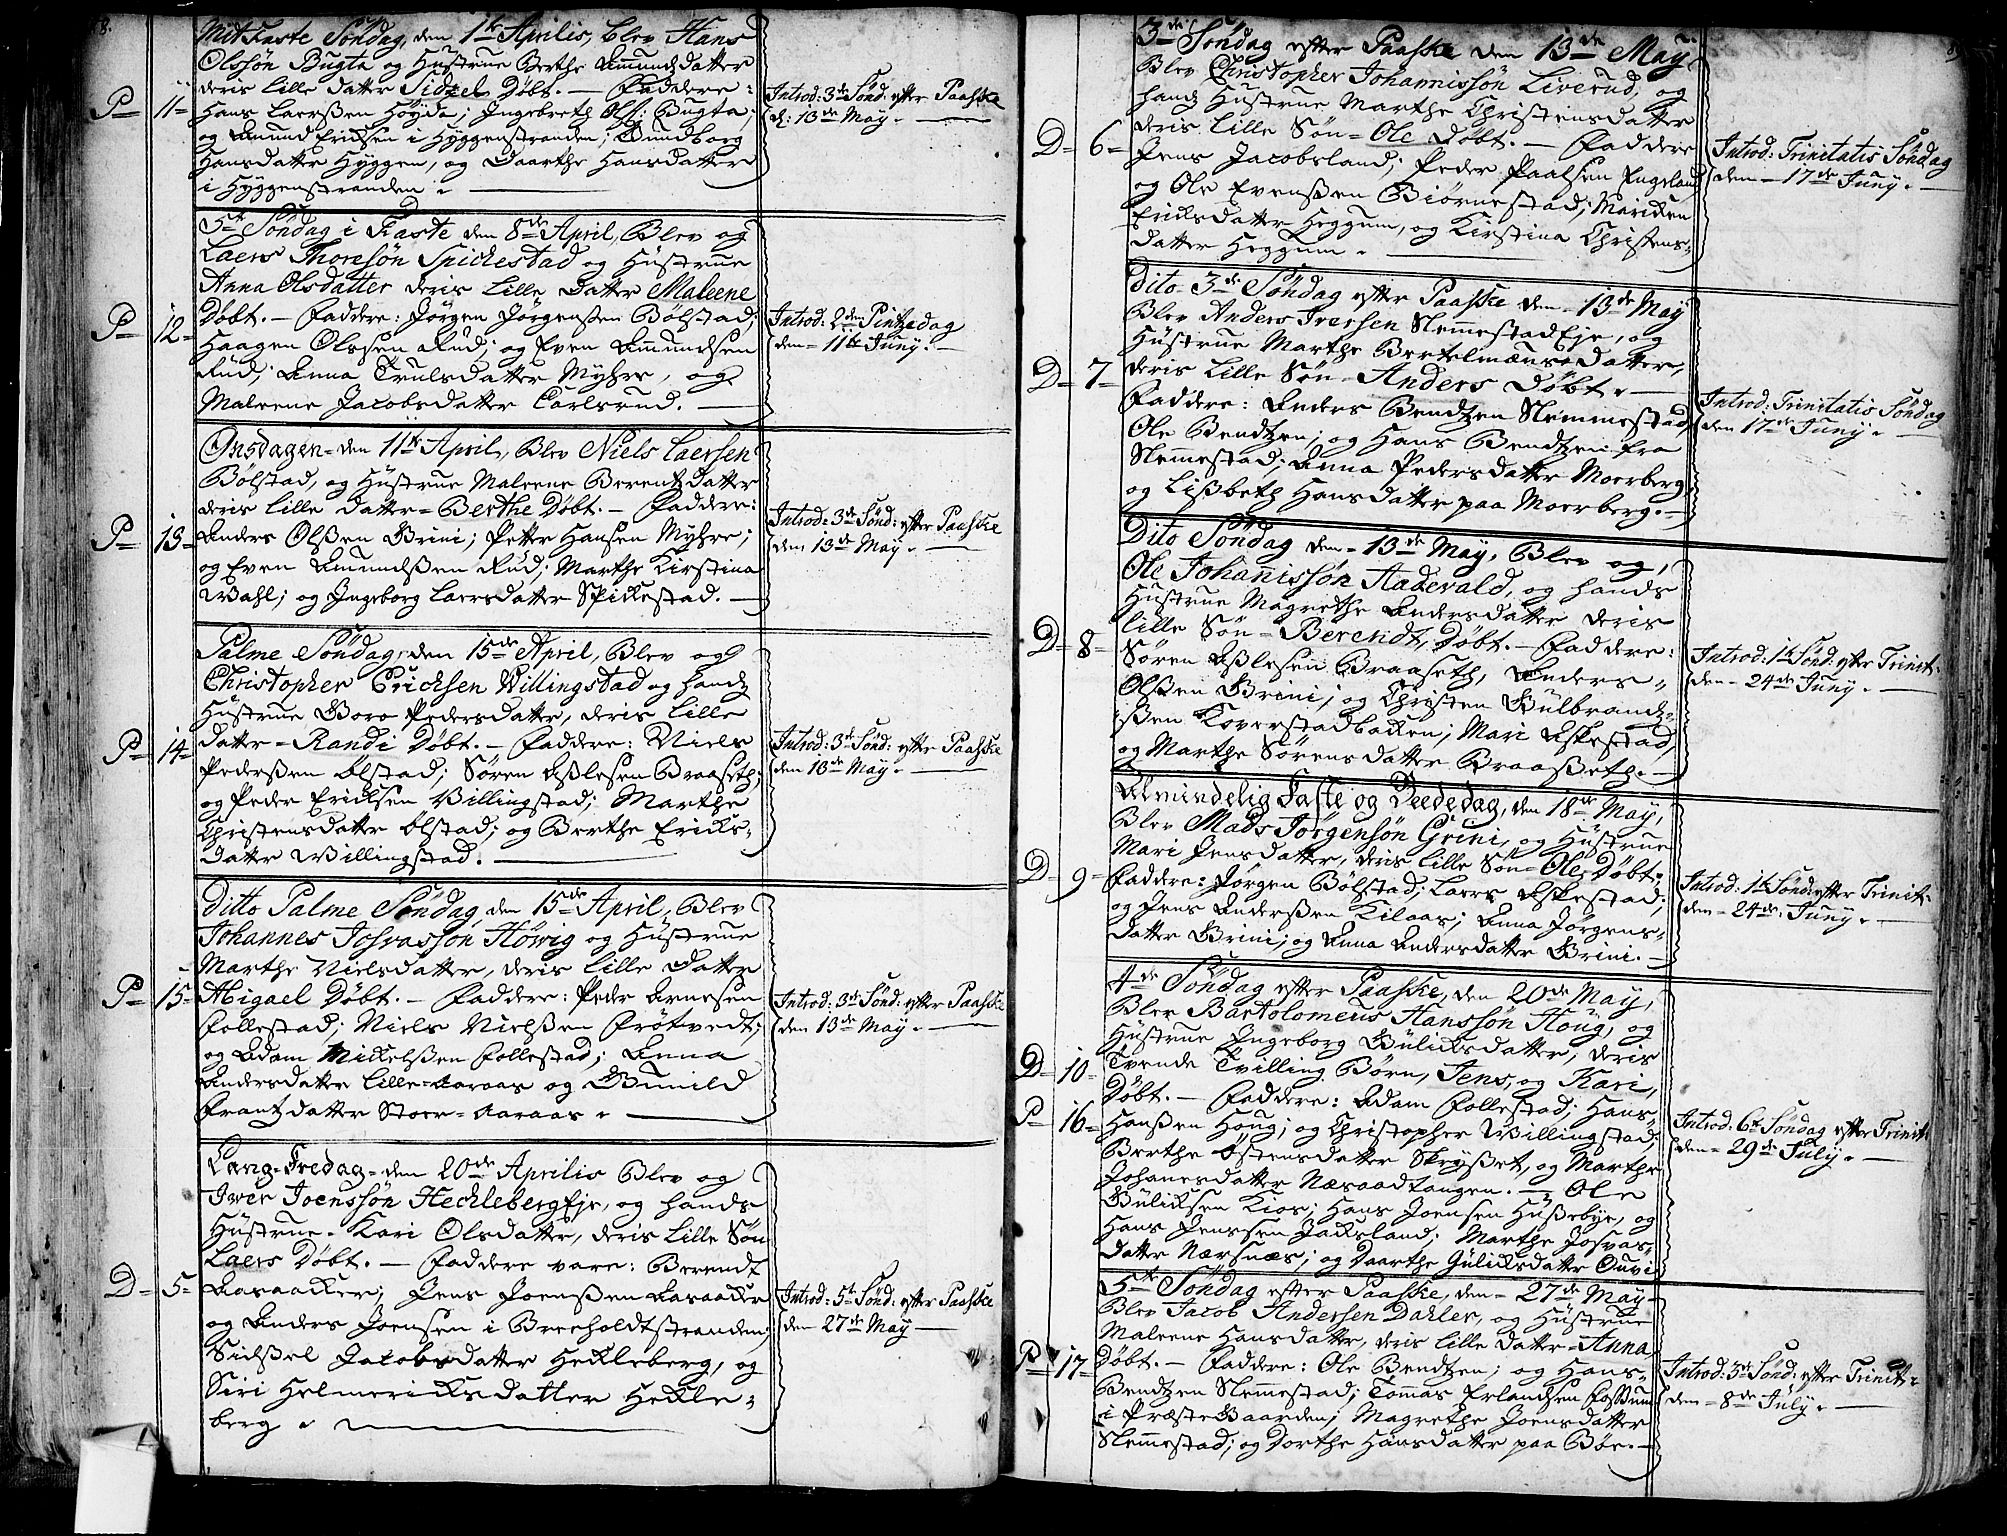 8.
Mit Faste Søndag, den 1te Aprilis, blev Hans
Olssøn Bugta og Hustrue Berthe Amundsdatter
deris lille datter Sidzel Døbt. — Faddere:
P 11 Hans Larssen Høyda; Ingebreth Ols: Bugta;
og Amund Ericksen i Hyggenstranden; Gundborg
Hansdatter Hyggen, og Daarthe Hansdatter
i Hyggenstranden
Introd: 3de Sønd: efter Paaske
d: 13de May.
5te Søndag i Faste den 8de April, Blev og
Laers Thoresøn Spickestad og Hustrue
Anna Olsdatter deris Lille Datter Maleene
P 12 Døbt. — Faddere: Jørgen Jørgenssen Bølstad;
Haagen Olssen Rud; og Even Amundsen
Rud; Anna Trulsdatter Myhre, og
Maleene Jacobsdatter Carlsrud.
Introd: 2den Pintzedag
den 11te Juny.
Onsdagen den 11te April, Blev Niels Laersen
Bølstad, og Hustrue Maleene Berentzdatter
deris Lille datter Berthe Døbt. — Faddere:
P 13 Anders Olssen Brini; Petter Hansen Myhre;
og Even Amundssen Rud; Marthe Kirstina
Wahl; og Ingeborg Laersdatter Spickestad.
Introd: 3de Sønd: efter Paaske
den 13de May.
Palme Søndag, den 15de April, Blev og
Christopher Ericksen Willingstad og hands
Hustrue Boro Pedersdatter, deris lille
P 14 datter Randi Døbt. — Faddere: Niels
Pederssen Ølstad; Søren Asslesen Braaseth;
og Peder Ericksen Willingstad; Marthe
Christensdatter Ølstad; og Berthe Ericks-
datter Willingstad.
Introd: 3de Sønd: efter Paaske
den 13de May.
Ditto Palme Søndag den 15de April, Blev
Johannes Josvassøn Høwig og Hustrue
Marthe Nielsdatter, deris Lille Datter
P 15 Abigael Døbt. — Faddere: Peder Arnesen
Follestad; Niels Nielssen Frøtvedt;
og Adam Mickelssen Follestad; Anna
Andersdatter Lille-Aaraas og Gunild
Frantzdatter Stoer-Aaraas
Introd: 3de Sønd: efter Paaske
den 13de May.
Lang-Fredag den 20de Aprilis Blev og
Iver Joenssøn Heckleberg Eje, og hands
Hustrue Kari Olsdatter, deris Lille Søn
Laers Døbt. — Faddere vare: Berendt
D 5 Aasaacker; Jens Joenssen Aasaacker
og Anders Joensen i Breeholdtstranden;
Sidssel Jacobsdatter Heckleberg, og
Siri Helmericksdatter Heckle-
berg
Introd: 5te Sønd: efter Paaske
den 27de May
3de Søndag efter Paaske den 13de May
Blev Christopher Johannissøn Liverud, og
hands Hustrue Marthe Christensdatter
deris Lille Søn Ole Døbt. — Faddere
D 6 Jens Jacobsland; Peder Paalsen Engeland
og Ole Evenssen Biørnestad; Mariken
Ericksdatter Heggum, og Kirstina Christens-
datter Heggum
Introd: Trinitatis Søndag
den 17de Juny.
Dito 3de Søndag efter Paaske den 13de May
Blev Anders Iversen Slemmestad Eje, og
Hustrue Marthe Bertelmæusdatter,
D 7 deris Lille Søn Anders Døbt. —
Faddere: Anders Bendtzen Slemmestad,
Ole Bendtzen; og Hans Bendtzen fra
Slemmestad; Anna Pedersdatter Moerberg,
og Lissbeth Hansdatter paa Moerberg.
Introd: Trinitatis Søndag
den 17de Juny.
Dito Søndag den 13de May, Blev og,
Ole Johanissøn Aadevald, og hands
Hustrue Magrethe Andersdatter deris
lille Søn Berendt, Døbt. — Faddere:
D 8 Søren Asslesen Braaseth, Anders
Olssen Brini; og Christen Gulbrands-
ssen Koverstadbacken; Mari Askestad,
og Marthe Sørensdatter Braasseth.
Introd: 1te Sønd: efter Trinit:
den 24de Juny.
Almindelig Faste og Beededag, den 18de May,
Blev Mads Jørgensøn Grini, og Hustrue
Mari Jensdatter, deris lille Søn Ole Døbt.
D 9 Faddere: Jørgen Bølstad; Laers Askestad;
og Jens Anderssen Kilaas; Anna Jørgens-
datter Brini; og Anna Andersdatter Brini.
Introd: 1te Sønd: efter Trinit:
den 24de Juny.
4de Søndag efter Paaske, den 20de May,
Blev Bartolomeus Hanssøn Houg, og
Hustrue Ingeborg Gulicksdatter, deris
D 10 Tvende Tvilling Børn, Jens, og Kari,
Døbt. — Faddere: Adam Follestad; Hans
P 16 Hanssen Houg; og Christopher Willingstad;
Berthe Østensdatter Skrysset, og Marthe
Johanesdatter Næsaadtangen. — Ole
Gulicksen Kios; Hans Joensen Hussebye, og
Hans Jenssen Jacksland; Marthe Josvas-
datter Nærsnæs; og Daarthe Gulicksdatter Ouvi
Introd: 6te Søndag efter Trinit:
den 29de July.
5te Søndag efter Paaske, den 27de May
Blev Jacob Andersen Dahler, og Hustrue
Maleene Hansdatter, deris lille datter Anna
P 17 Døbt. — Faddere: Ole Bendtzen; og Hans
Bendtzen Slemmestad; Tommas Erlandsen Fossum
i Præste Gaarden; Magrethe Joensdatter
Slemmestad; og Dorthe Hansdatter paa Bøe.
Introd: 3de Sønd: efter Trinit:
den 8de July.